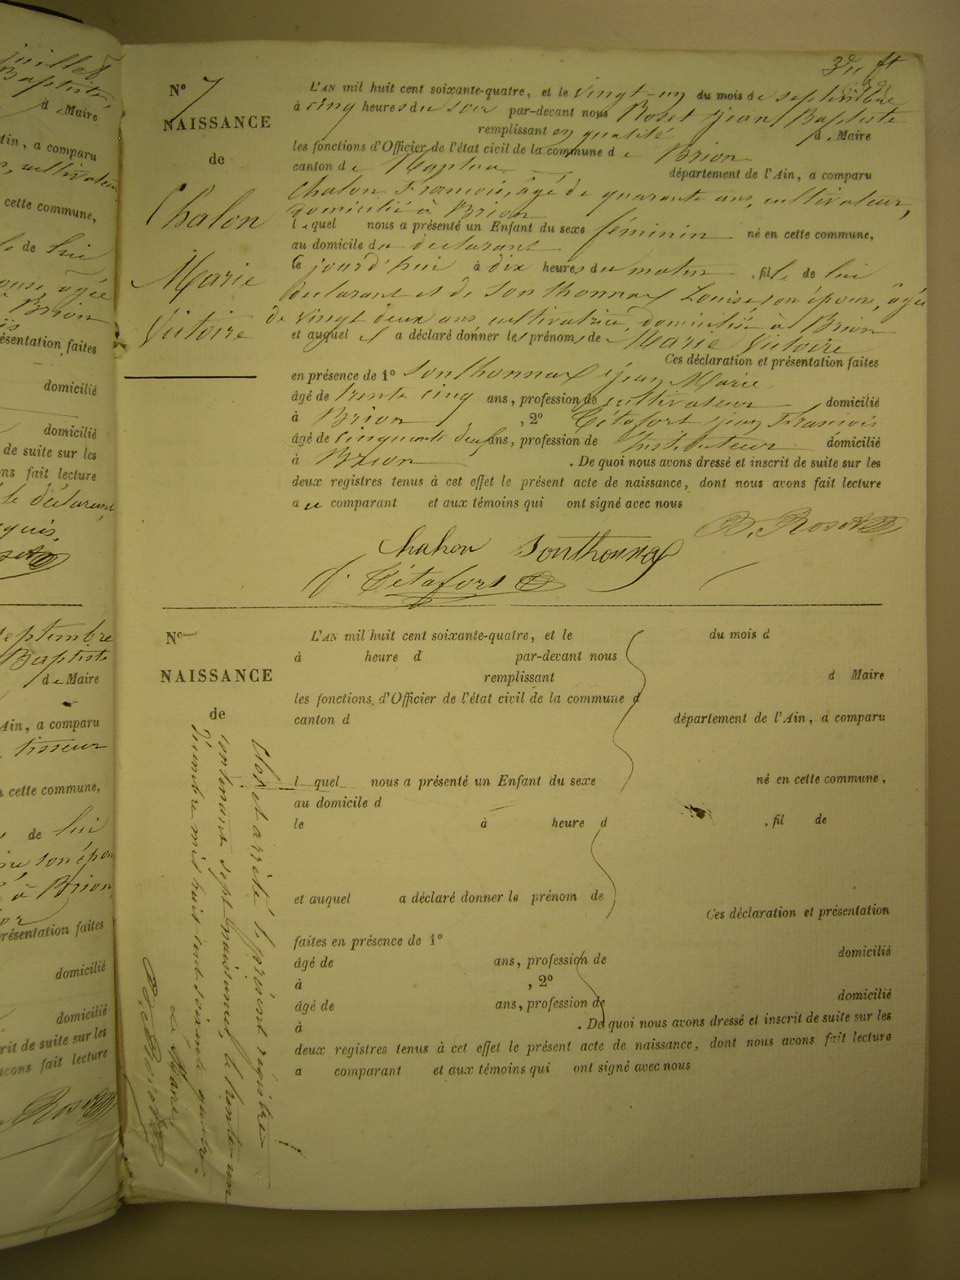 juillet
Baptiste,
d e Maire
Ain, a comparu
cultivateur
cette commune,
de lui
âgée
à Brion
présentation faites
domicilié
domicilié
de suite sur les
fait lecture
le déclarant
septembre
Baptiste
d e Maire
Ain, a comparu
tisseur
cette commune,
de lui
son épou
à Brion
présentation faites
domicilié
domicilié
de suite sur les
avons fait lecture
Roset
3e ft
N° 7
NAISSANCE
de
Chalon
Marie
Victoire
L'AN mil huit cent soixante-quatre, et le vingt-un du mois de septembre
à cinq heures du soir par-devant nous Roset Jean Baptiste
remplissant en qualité d e Maire
les fonctions d'Officier de l'état civil de la commune d e Brion
canton d e Nantua département de l'Ain, a comparu
Chalon François, âgé de quarante ans, cultivateur,
domicilié à Brion
lequel nous a présenté un Enfant du sexe féminin né en cette commune,
au domicile du déclarant
le jour d'hui à dix heures du matin , fille de lui
déclarant et de Sonthonnax Louise son épouse, âgée
de vingt deux ans, cultivatrice, domiciliée à Brion
et auquel il a déclaré donner les prénoms de Marie Victoire
Ces déclaration et présentation faites
en présence de 1° Sonthonnax Jean Marie
âgé de trente cinq ans, profession de cultivateur domicilié
à Brion , 2° Tétafort Jean François
âgé de cinquante deux ans, profession de instituteur domicilié
à Brion . De quoi nous avons dressé et inscrit de suite sur les
deux registres tenus à cet effet le présent acte de naissance, dont nous avons fait lecture
au comparant et aux témoins qui ont signé avec nous
B. Roset
Chalon Sonthonnax
J. Tétafort
N°
NAISSANCE
de
L'AN mil huit cent soixante-quatre, et le du mois d
à heure d par-devant nous
remplissant d Maire
les fonctions d'Officier de l'état civil de la commune d
canton d département de l'Ain, a comparu
l quel nous a présenté un Enfant du sexe né en cette commune,
au domicile d
le à heure d , fil de
et auquel a déclaré donner le prénom de
Ces déclaration et présentation
faites en présence de 1°
âgé de ans, profession de domicilié
à , 2°
âgé de ans, profession de domicilié
à . De quoi nous avons dressé et inscrit de suite sur les
deux registres tenus à cet effet le présent acte de naissance, dont nous avons fait lecture
a comparant et aux témoins qui ont signé avec nous
Clos et arrêté le présent registre
contenant sept naissances, le trente un
décembre mil huit cent soixante quatre.
Le Maire,
B. Roset